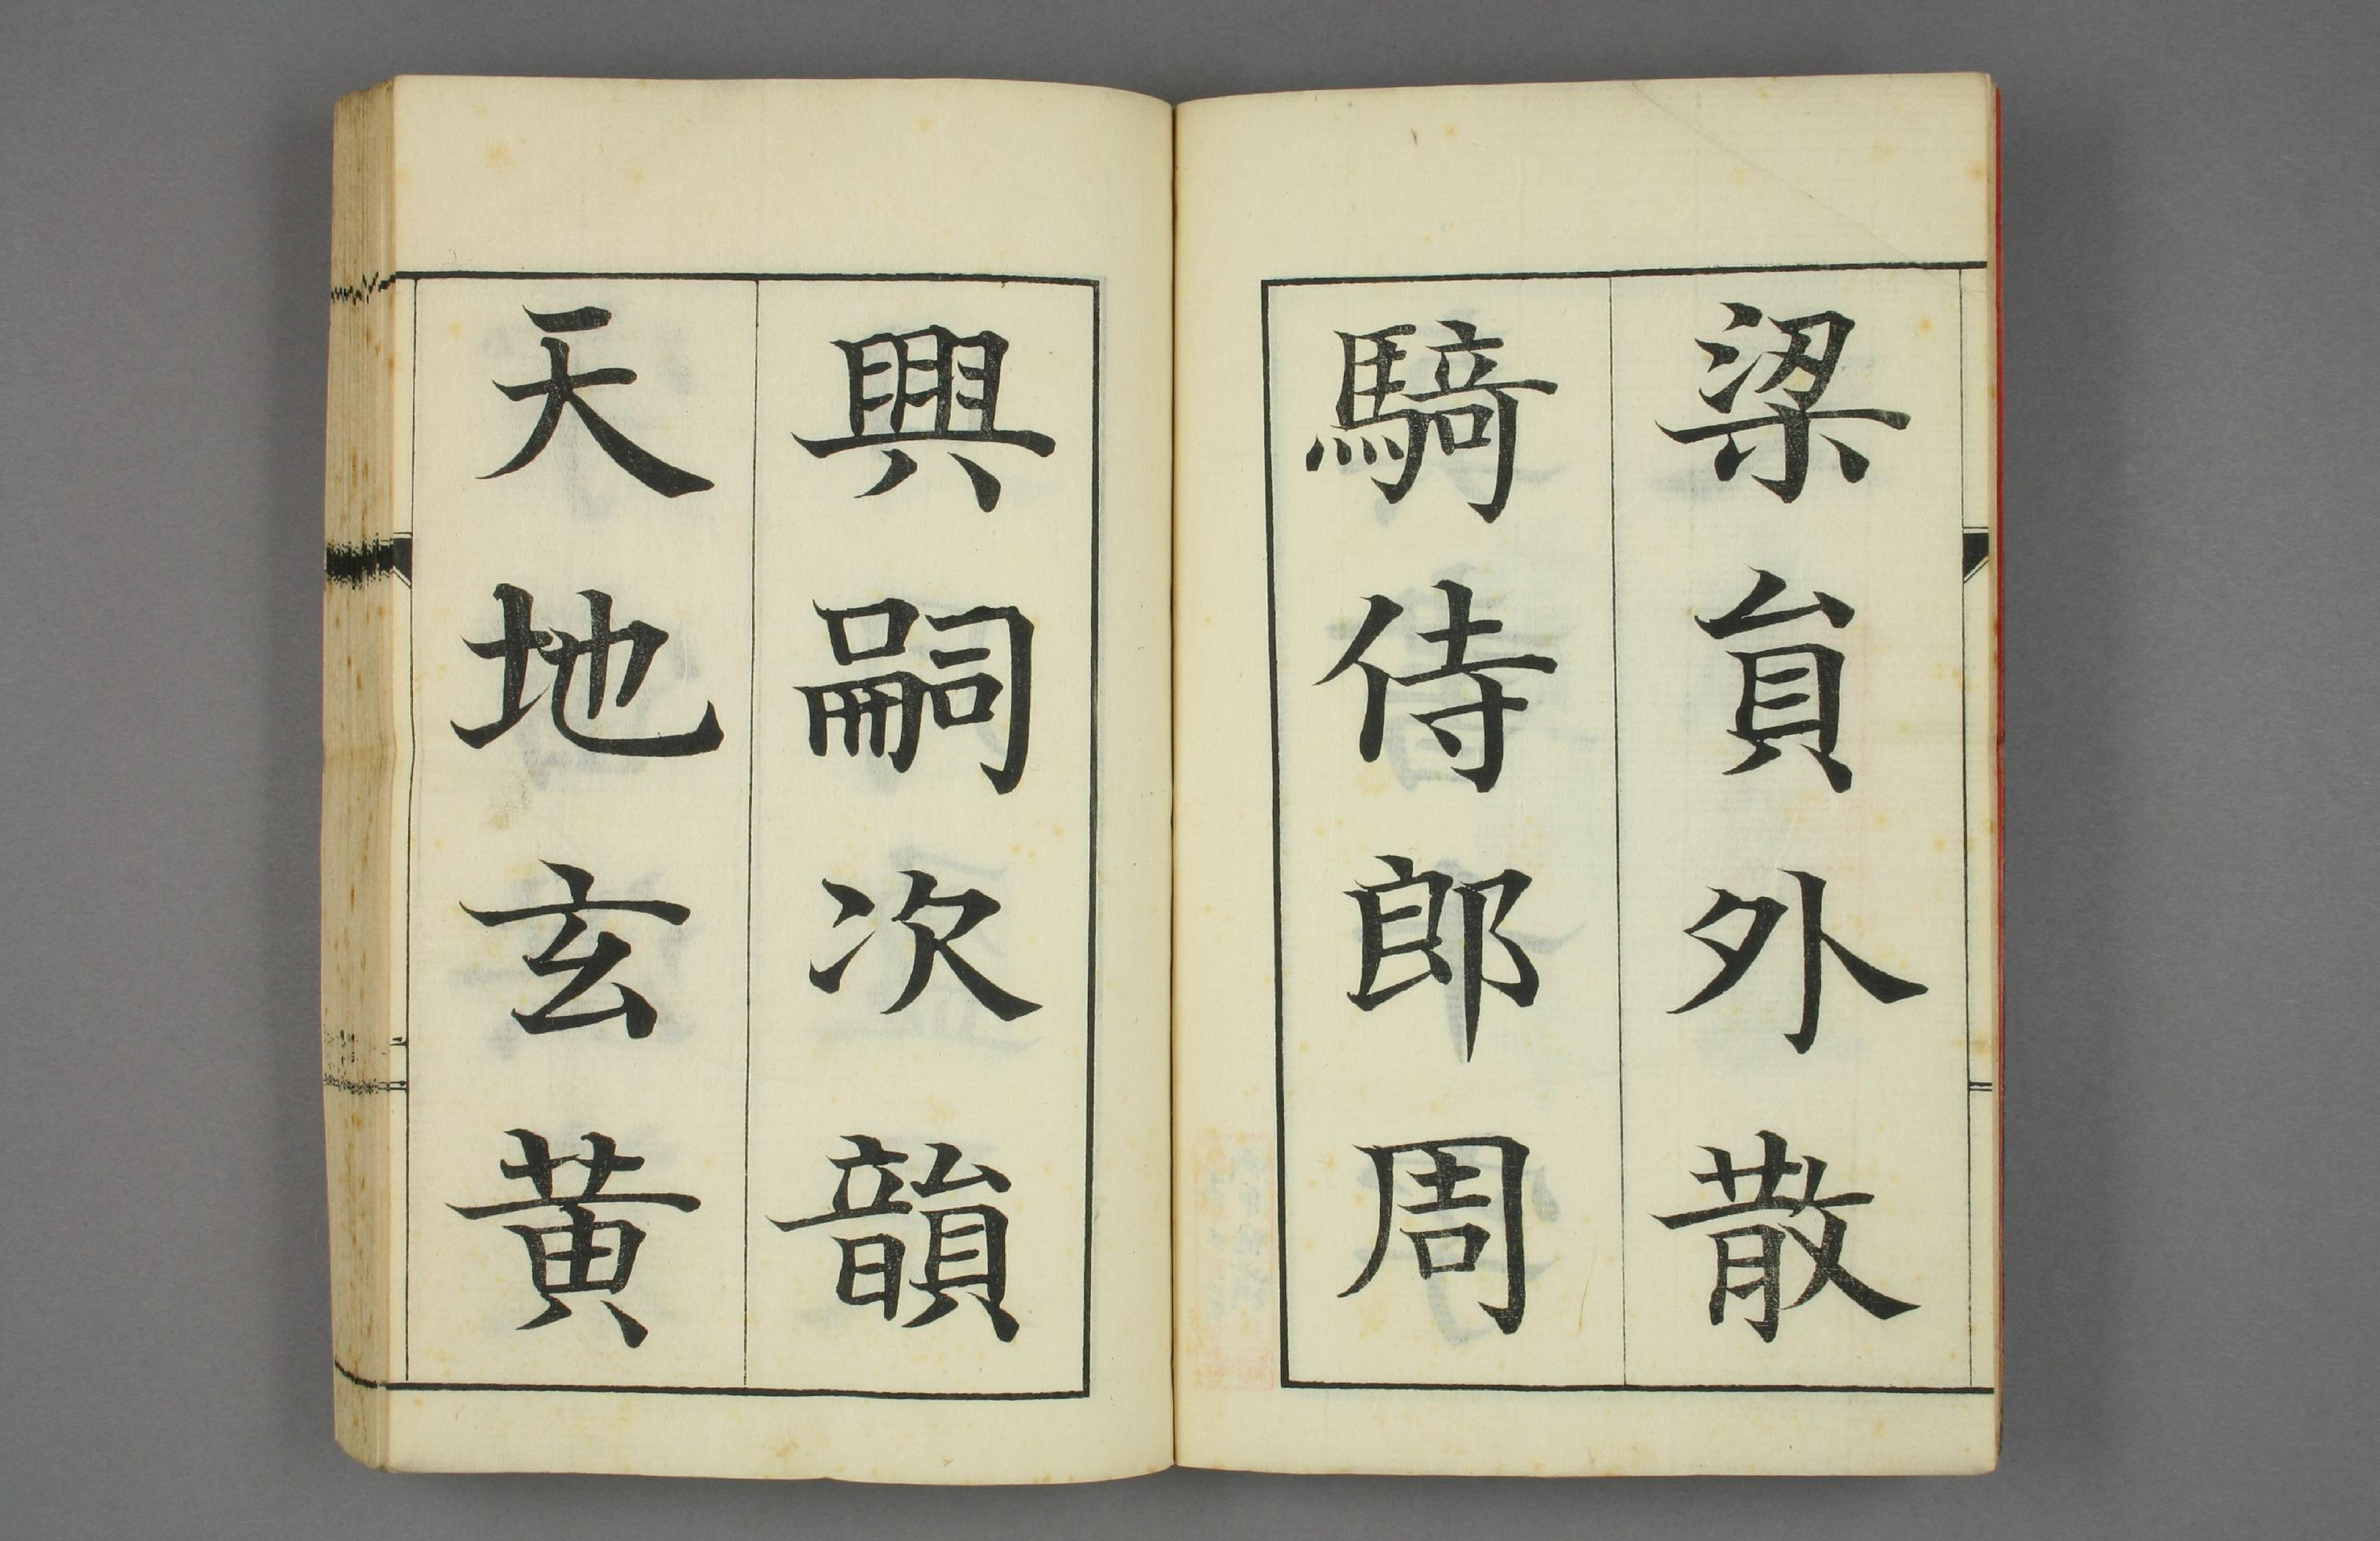 梁貟外散
騎侍郎周
興嗣次韻
天地玄黃